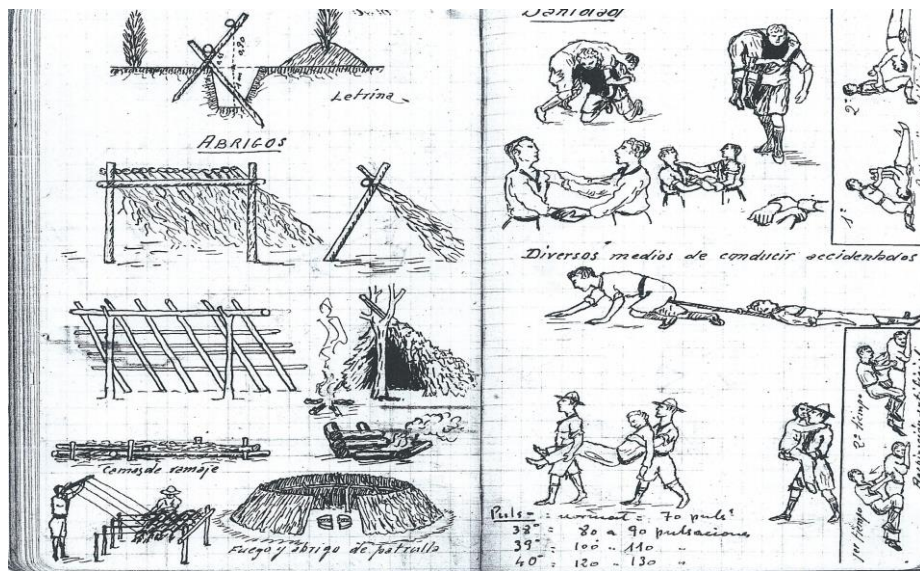 Letrina
ABRIGOS
Camas de ramaje
Fuego y abrigo de patrulla
Sanidad
2º
1º
Diversos medios de conducir accidentados
2º tiempo
1er tiempo
Puls- = normal = 70 puls^s
38º = 80 a 90 pulsaciones
39º = 100 - 110 "
40º = 120 - 130 "